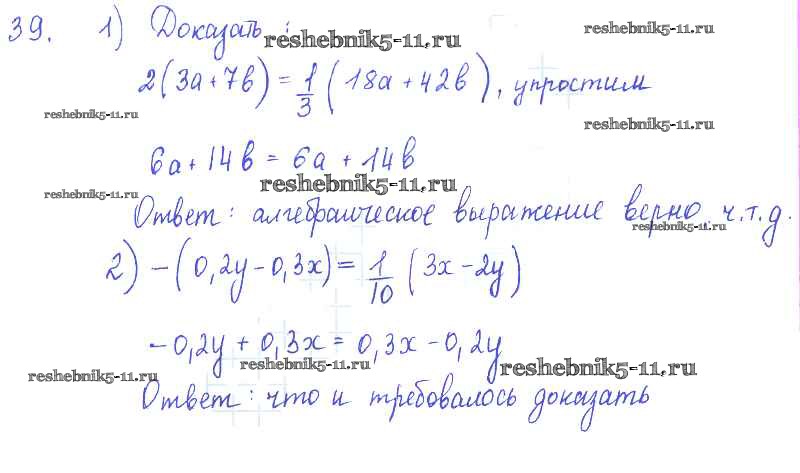 39. 1) Доказать:
reshebnik5-11.ru
reshebnik5-11.ru
2(3a+7b)=1/3(18a+42b), упростим
reshebnik5-11.ru
reshebnik5-11.ru
6a+14b=6a+14b
reshebnik5-11.ru
reshebnik5-11.ru
Ответ: алгебраическое выражение верно. ч.т.д.
reshebnik5-11.ru
2) -(0,2y-0,3x)=1/10(3x-2y)
-0,2y+0,3x=0,3x-0,2y
reshebnik5-11.ru
reshebnik5-11.ru
reshebnik5-11.ru
Ответ: что и требовалось доказать